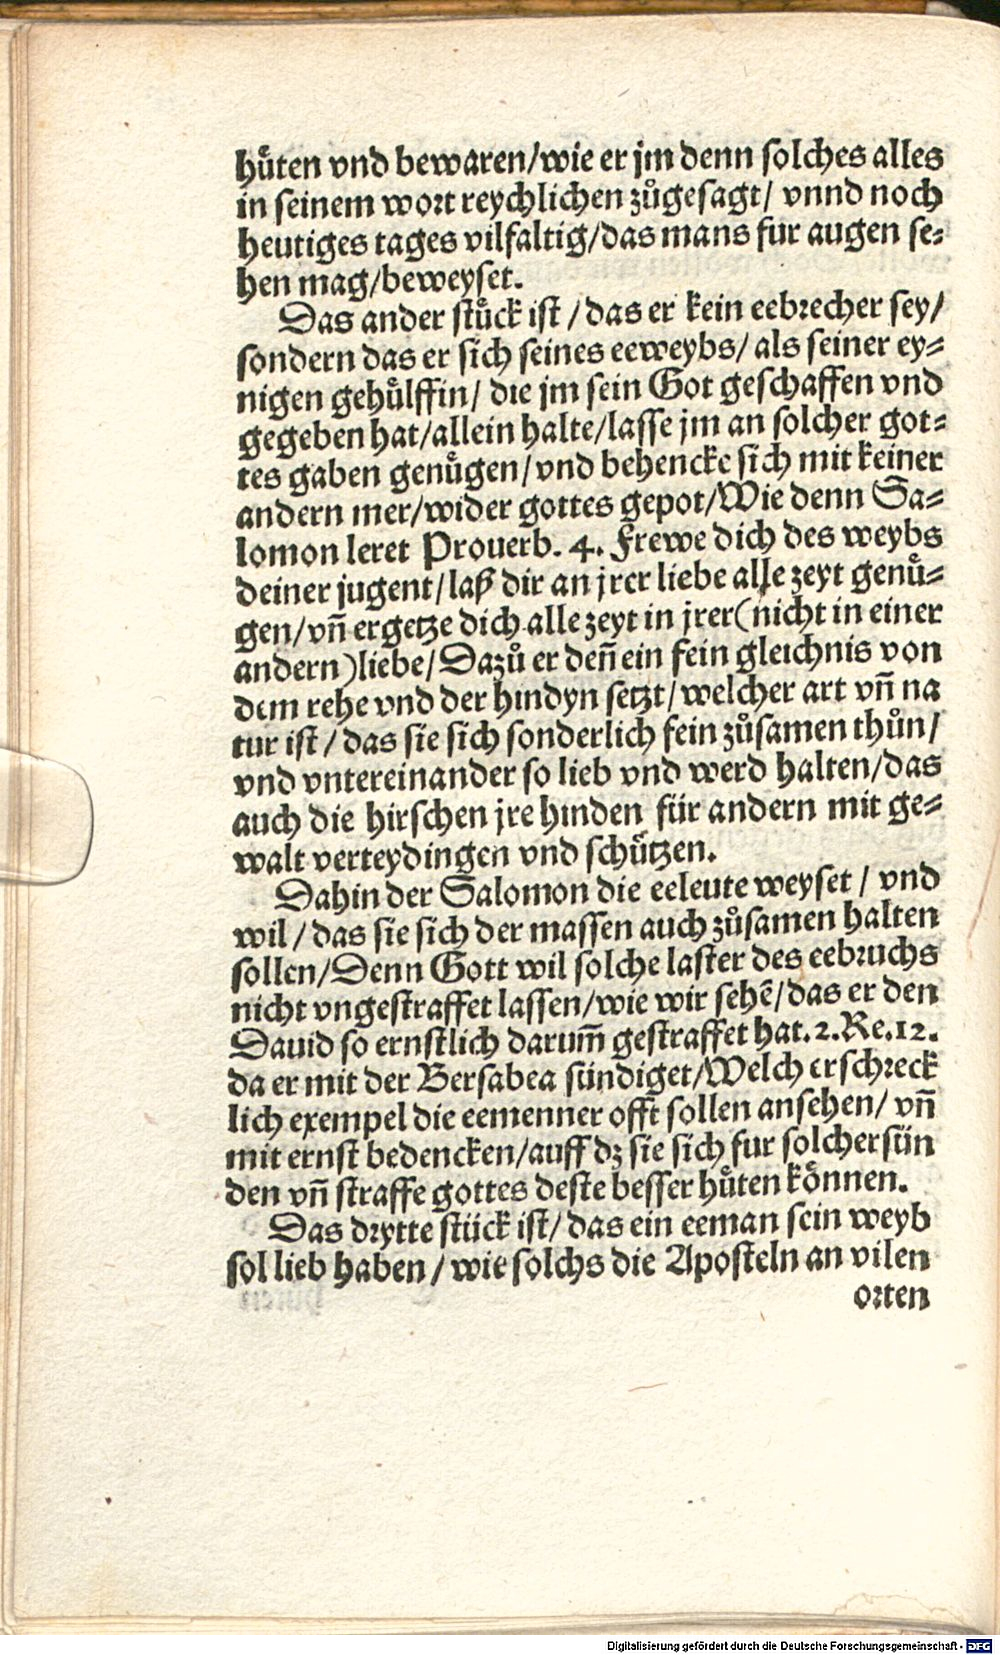 hůten vnd bewaren/wie er jm denn solches alles
in seinem wort reychlichen zůgesagt/ vnnd noch
heutiges tages vilfaltig/das mans fur augen se⸗
hen mag/beweyset.
Das ander stůck ist / das er kein eebrecher sey/
sondern das er sich seines eeweybs/ als seiner ey⸗
nigen gehůlffin/ die jm sein Got geschaffen vnd
gegeben hat/allein halte/lasse jm an solcher got⸗
tes gaben genůgen/vnd behencke sich mit keiner
andern mer/wider gottes gepot/Wie denn Sa⸗
lomon leret Prouerb. 4. Frewe dich des weybs
deiner jugent/laß dir an jrer liebe alle zeyt genů⸗
gen/vñ ergetze dich alle zeyt in jrer(nicht in einer
andern)liebe/Dazů er deñ ein fein gleichnis von
dem rehe vnd der hindyn setzt/welcher art vñ na
tur ist / das sie sich sonderlich fein zůsamen thůn/
vnd vntereinander so lieb vnd werd halten/das
auch die hirschen jre hinden für andern mit ge⸗
walt verteydingen vnd schůtzen.
Dahin der Salomon die eeleute weyset / vnd
wil / das sie sich der massen auch zůsamen halten
sollen/Denn Gott wil solche laster des eebruchs
nicht vngestraffet lassen/wie wir sehẽ/das er den
Dauid so ernstlich darum̃ gestraffet hat.2.Re.12.
da er mit der Bersabea sündiget/Welch erschreck
lich exempel die eemenner offt sollen ansehen/ vñ
mit ernst bedencken/auff dz sie sich fur solcher sün
den vñ straffe gottes deste besser hůten kǒnnen.
Das drytte stück ist/das ein eeman sein weyb
sol lieb haben / wie solchs die Aposteln an vilen
orten
Digitalisierung gefördert durch die Deutsche Forschungsgemeinschaft - DFG